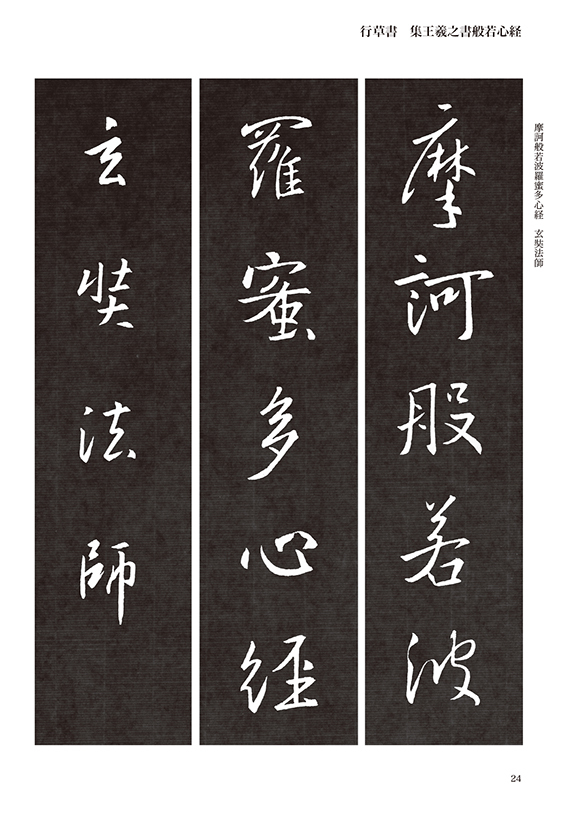 行草書　集王羲之書般若心経
摩訶般若波羅蜜多心経　玄奘法師
摩訶般若波
羅蜜多心経
玄奘法師
24